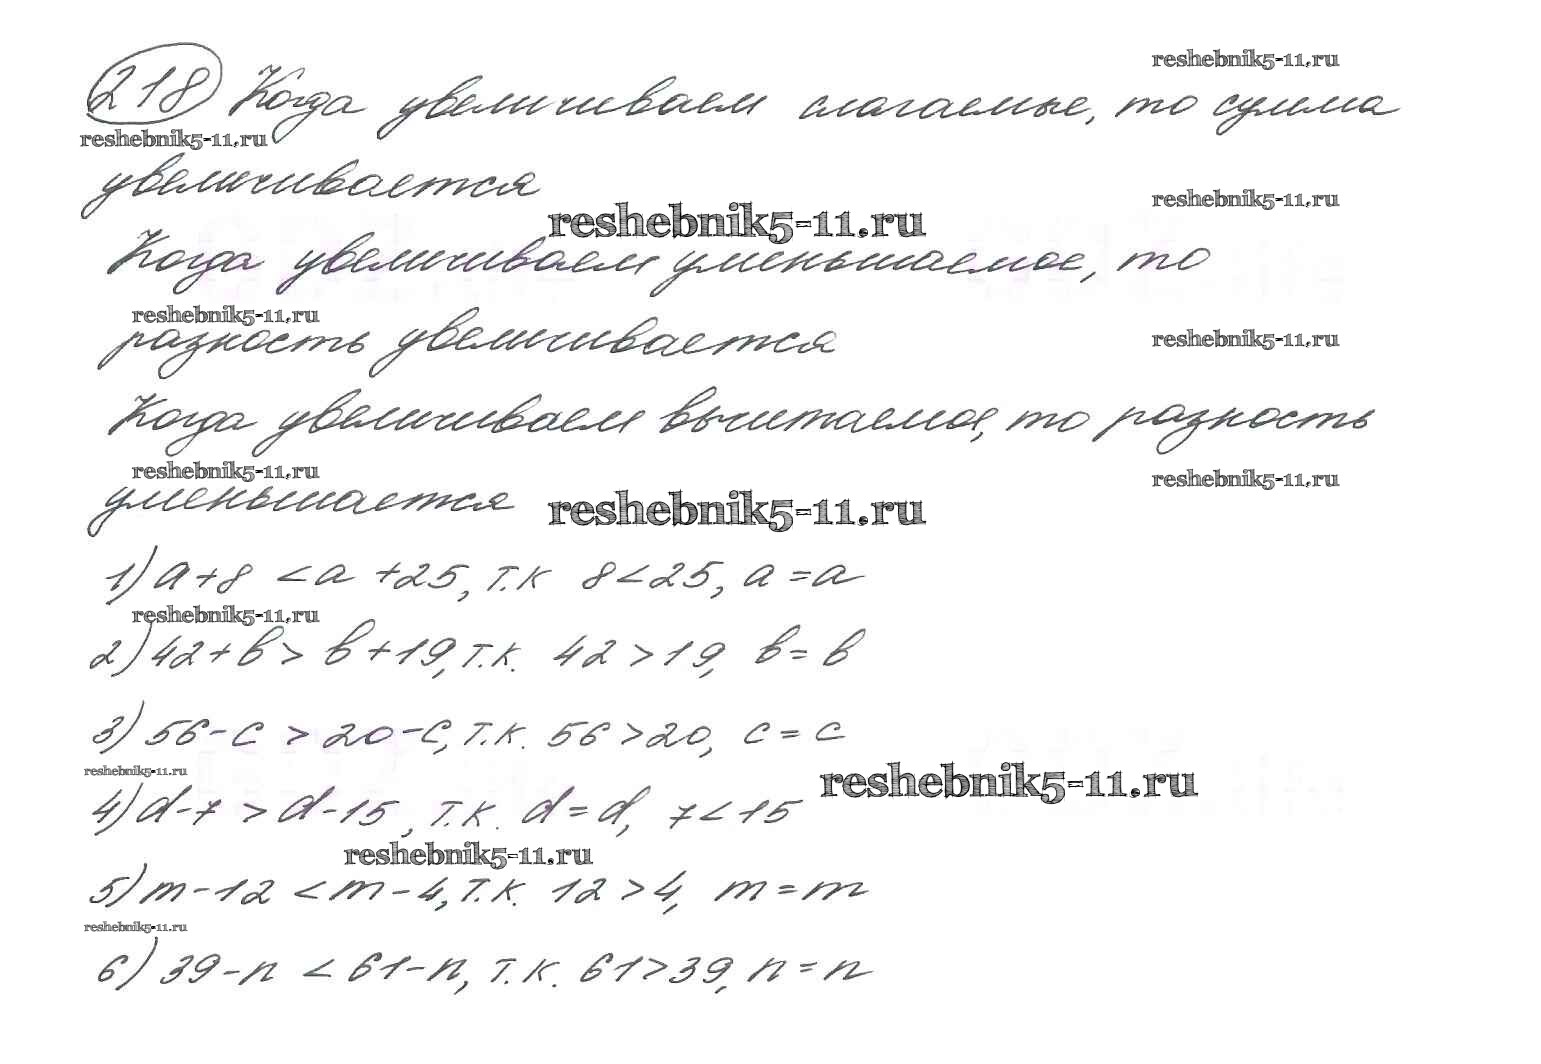 218 Когда увеличиваем слагаемые, то сумма
reshebnik5-11.ru
reshebnik5-11.ru
увеличивается
reshebnik5-11.ru
reshebnik5-11.ru
Когда увеличиваем уменьшаемое, то
reshebnik5-11.ru
разность увеличивается
reshebnik5-11.ru
Когда увеличиваем вычитаемое, то разность
reshebnik5-11.ru
reshebnik5-11.ru
уменьшается
reshebnik5-11.ru
1) a+8 < a +25, т.к 8<25, a = a
reshebnik5-11.ru
2) 42+b > b+19, т.к. 42 >19, b = b
3) 56-c > 20-c, т.к. 56 >20, c = c
reshebnik5-11.ru
reshebnik5-11.ru
4) d-7 > d-15, т.к. d = d, 7<15
reshebnik5-11.ru
5) m-12 < m-4, т.к. 12 >4, m = m
reshebnik5-11.ru
6) 39-n < 61-n, т.к. 61>39, n = n